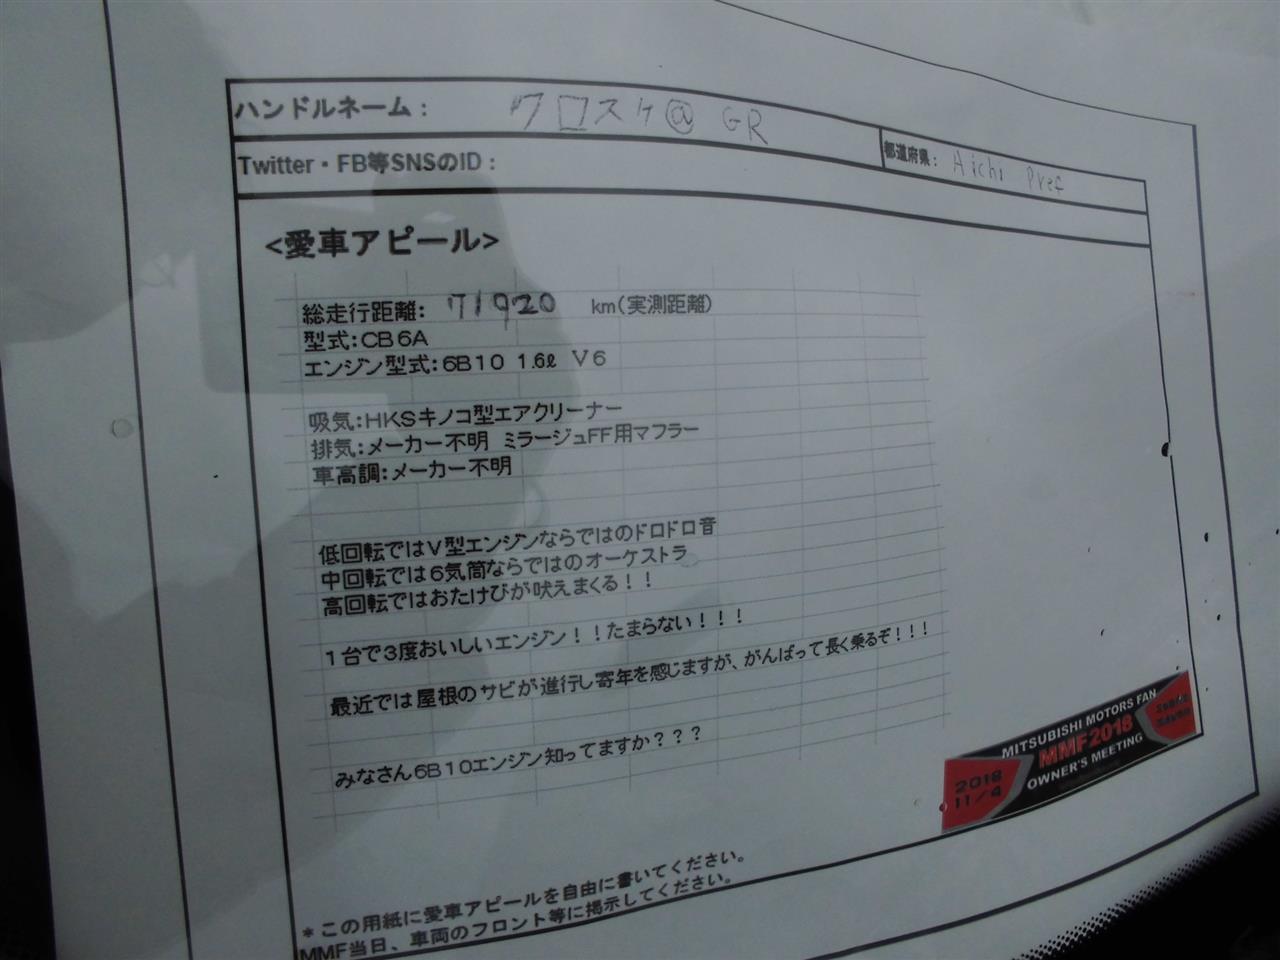 ハンドルネーム： クロスケ@GR
都道府県： Aichi Pref
Twitter・FB等SNSのID：
<愛車アピール>
総走行距離： 71920 km(実測距離)
型式：CB6A
エンジン型式：6B10 1.6ℓ V6
吸気：HKSキノコ型エアクリーナー
排気：メーカー不明 ミラージュFF用マフラー
車高調：メーカー不明
低回転ではV型エンジンならではのドロドロ音
中回転では6気筒ならではのオーケストラ
高回転ではおたけびが吠えまくる！！
1台で3度おいしいエンジン！！たまらない！！！
最近では屋根のサビが進行し寄年を感じますが、がんばって長く乗るぞ！！！
みなさん6B10エンジン知ってますか？？？
MITSUBISHI MOTORS FAN
MMF2018
OWNER'S MEETING
2018
11/4
*この用紙に愛車アピールを自由に書いてください。
MMF当日、車両のフロント等に掲示してください。